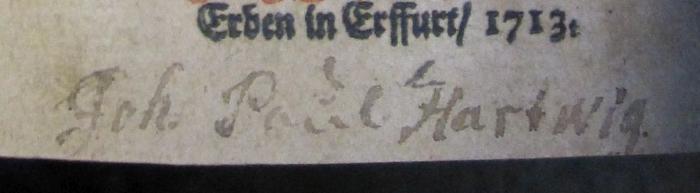 Erben in Erffurt/ 1713.
Joh. Paul Hartwig.